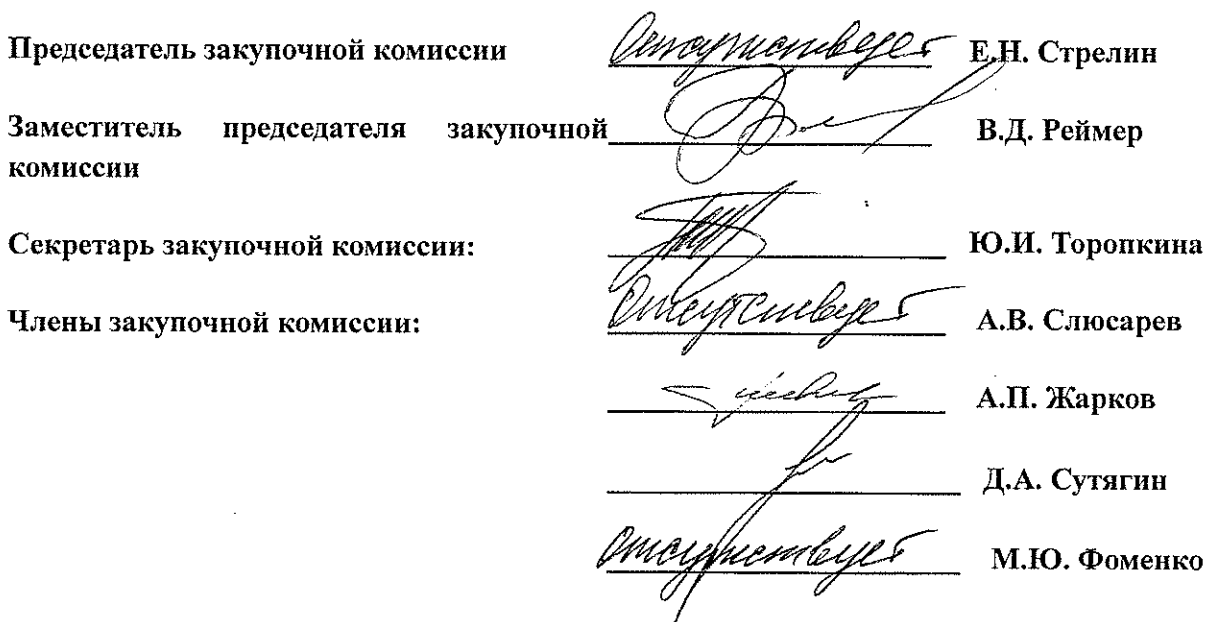 Председатель закупочной комиссии Отсутствует Е.Н. Стрелин
Заместитель председателя закупочной В.Д. Реймер
комиссии
Секретарь закупочной комиссии: Ю.И. Торопкина
Члены закупочной комиссии: Отсутствует А.В. Слюсарев
А.П. Жарков
Д.А. Сутягин
Отсутствует М.Ю. Фоменко